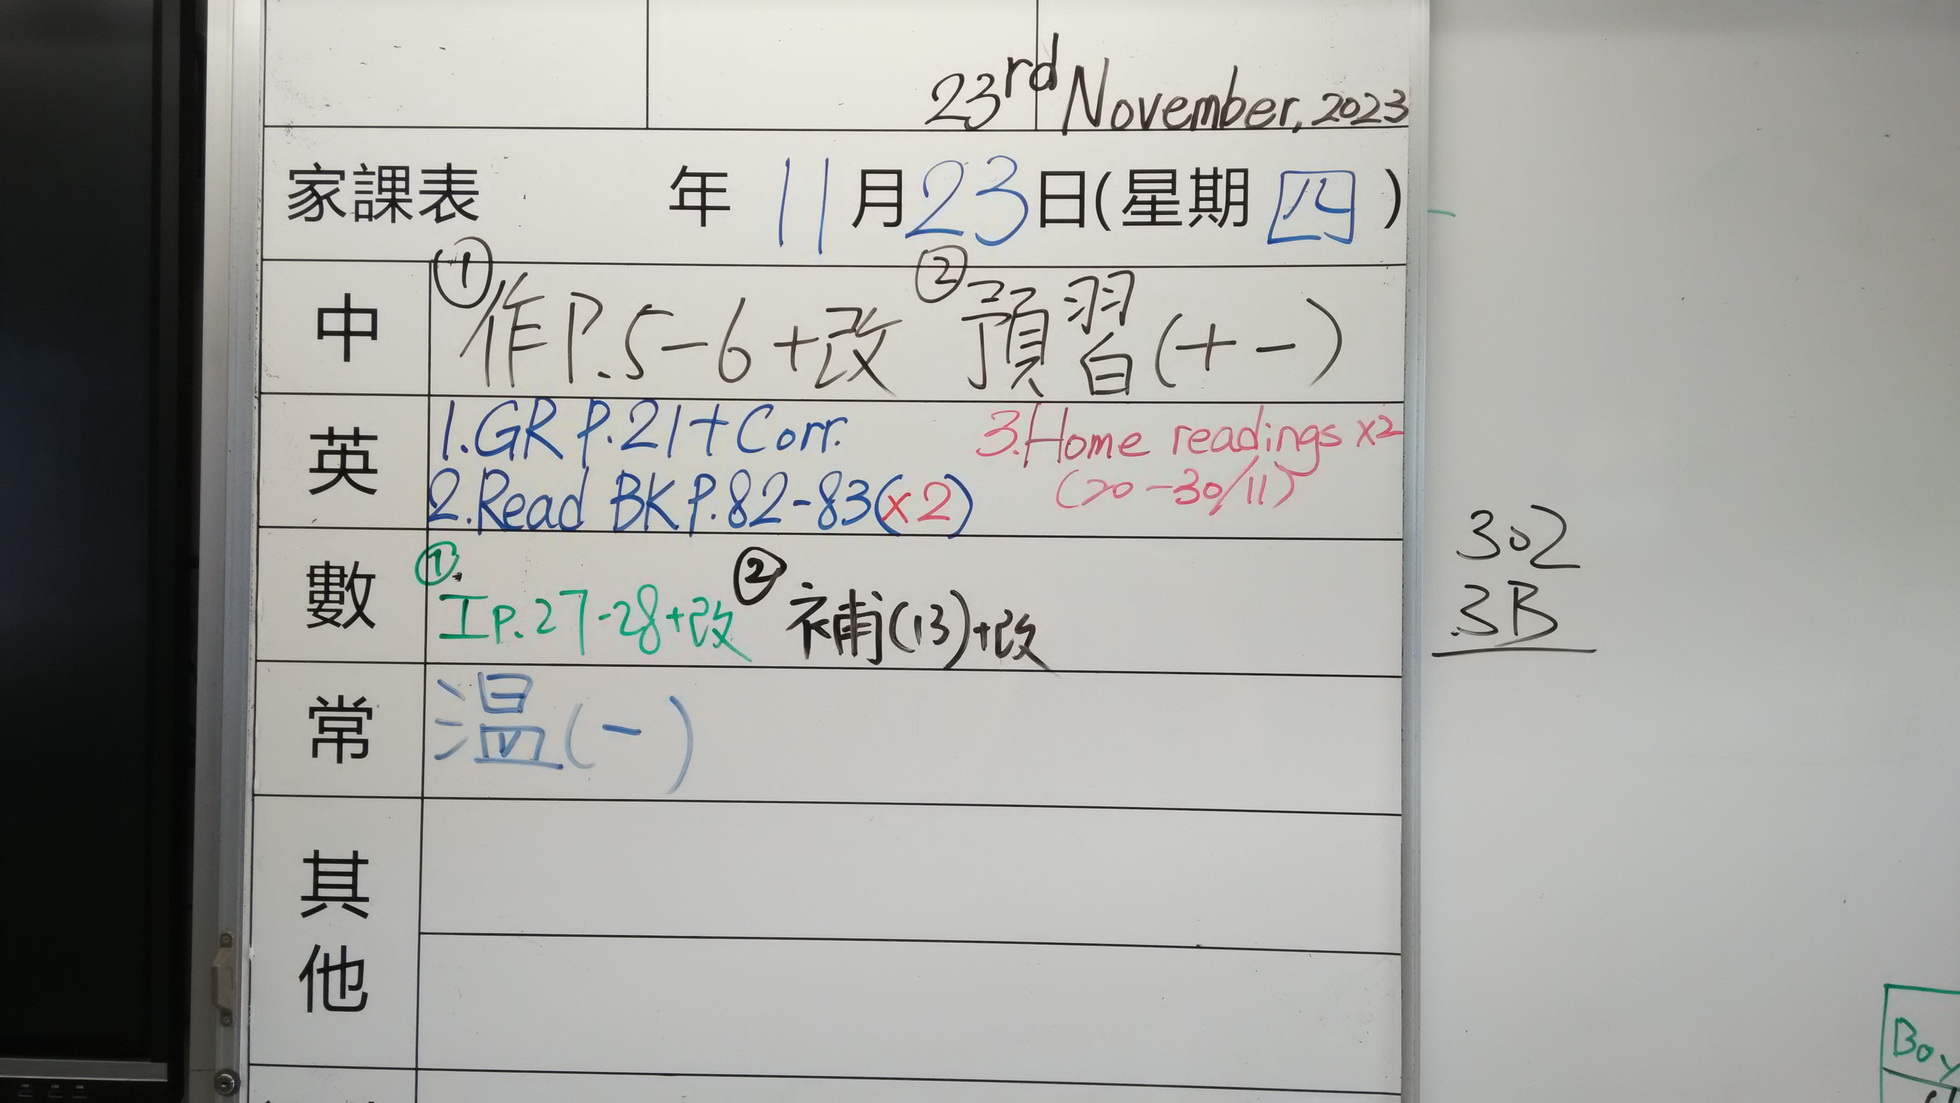 23rd November, 2023
家課表 年 11月23日(星期四)
中 ①作P.5-6+改 ②預習(十一)
英 1.GR P.21+Corr. 3.Home readings x2
2.Read BK P.82-83(x2) (20-30/11)
數 ①工P.27-28+改 ②補(13)+改
常 溫(一)
其他
302
3B
Boy